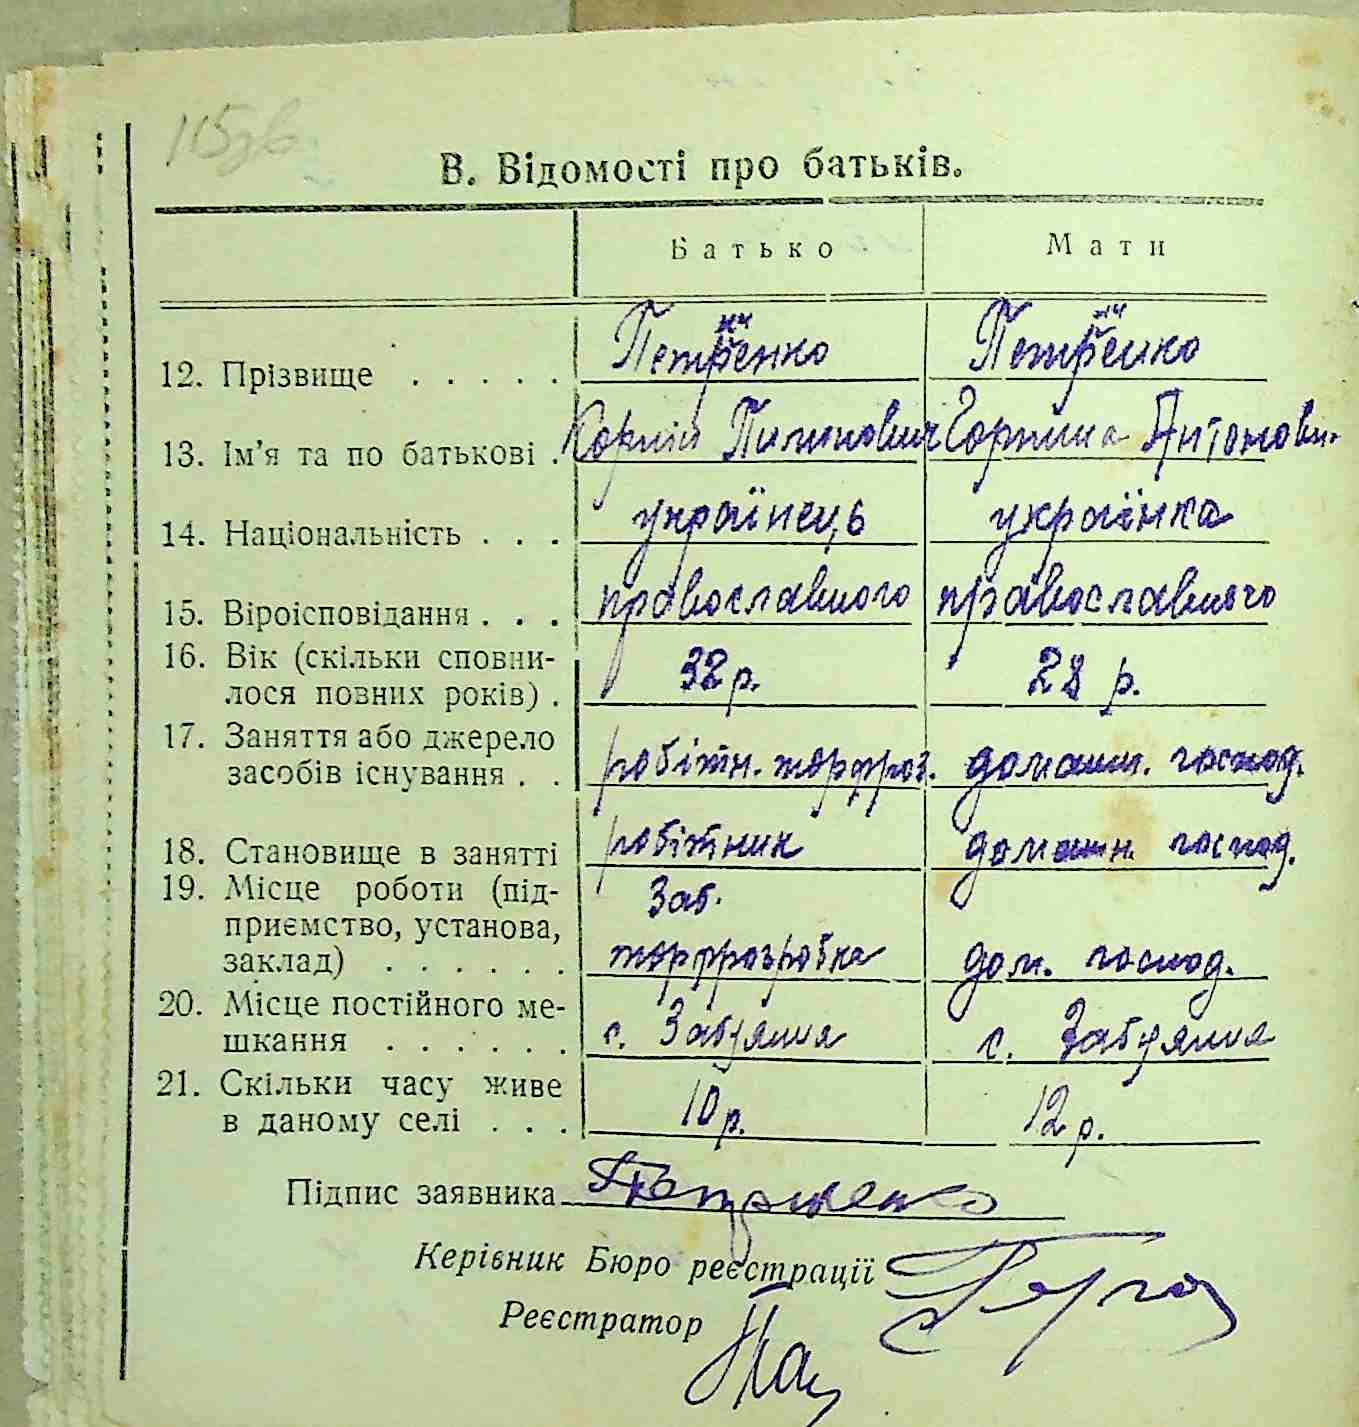 115зв
В. Відомості про батьків.
Батько Мати
12. Прізвище . . . . . Петриченко Петриченко
13. Ім'я та по батькові . Корній Пилипович Горпина Антонови.
14. Національність . . . українець українка
15. Віроісповідання . . . православного православного
16. Вік (скільки сповни-
лося повних років) . 32 р. 28 р.
17. Заняття або джерело
засобів існування . . робітн. торфроз. домашн. господ.
18. Становище в занятті робітник домашн. господ.
19. Місце роботи (під- Заб.
приємство, установа,
заклад) . . . . . . торфрозробка дом. господ.
20. Місце постійного ме-
шкання . . . . . . с. Забуяння с. Забуяння
21. Скільки часу живе
в даному селі . . . 10 р. 12 р.
Підпис заявника Петриченко
Керівник Бюро реєстрації
Реєстратор